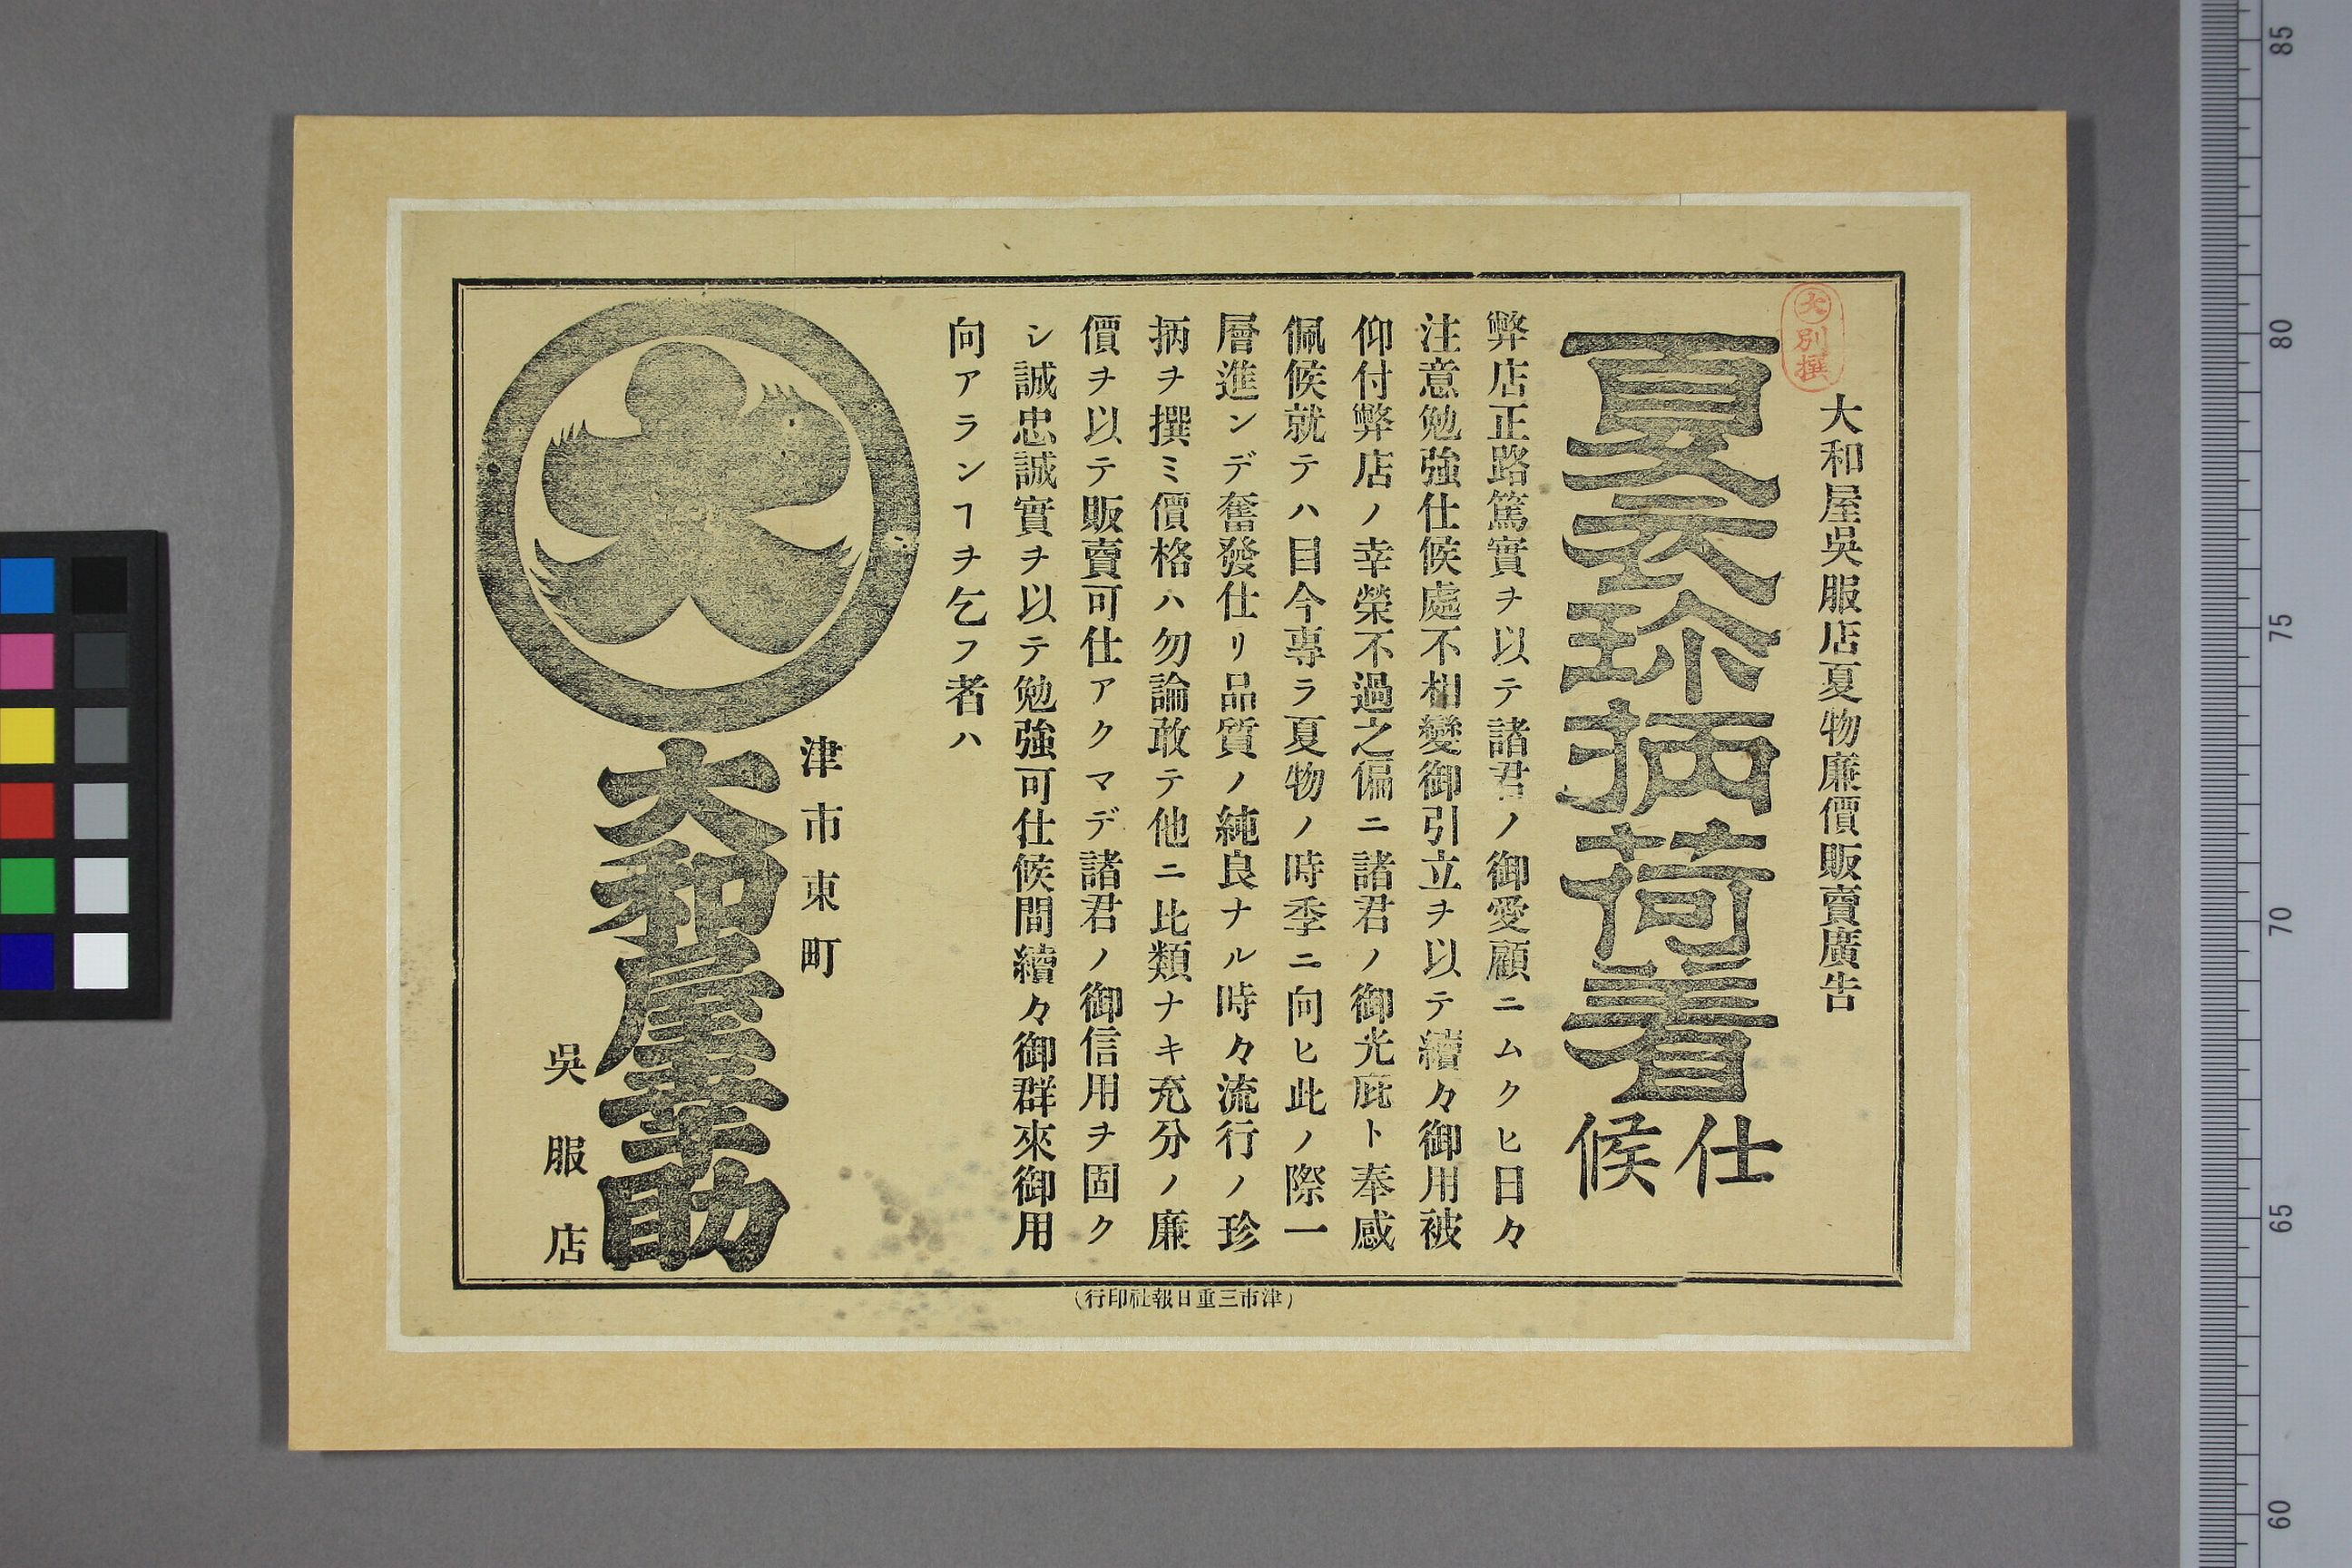 大別撰
大和屋吳服店夏物廉價販賣廣告
夏衣珍柄荷着仕候
弊店正路篤實ヲ以テ諸君ノ御愛顧ニムクヒ日々
注意勉強仕候處不相變御引立ヲ以テ續々御用被
仰付弊店ノ幸榮不過之偏ニ諸君ノ御光庇ト奉感
佩候就テハ目今專ラ夏物ノ時季ニ向ヒ此ノ際一
層進ンデ奮發仕リ品質ノ純良ナル時々流行ノ珍
柄ヲ撰ミ價格ハ勿論敢テ他ニ比類ナキ充分ノ廉
價ヲ以テ販賣可仕アクマデ諸君ノ御信用ヲ固ク
シ誠忠誠實ヲ以テ勉強可仕候間續々御群來御用
向アランヿヲ乞フ者ハ
津市東町
大和屋幸助
吳服店
(行印社報日重三市津)
85
80
75
70
65
60